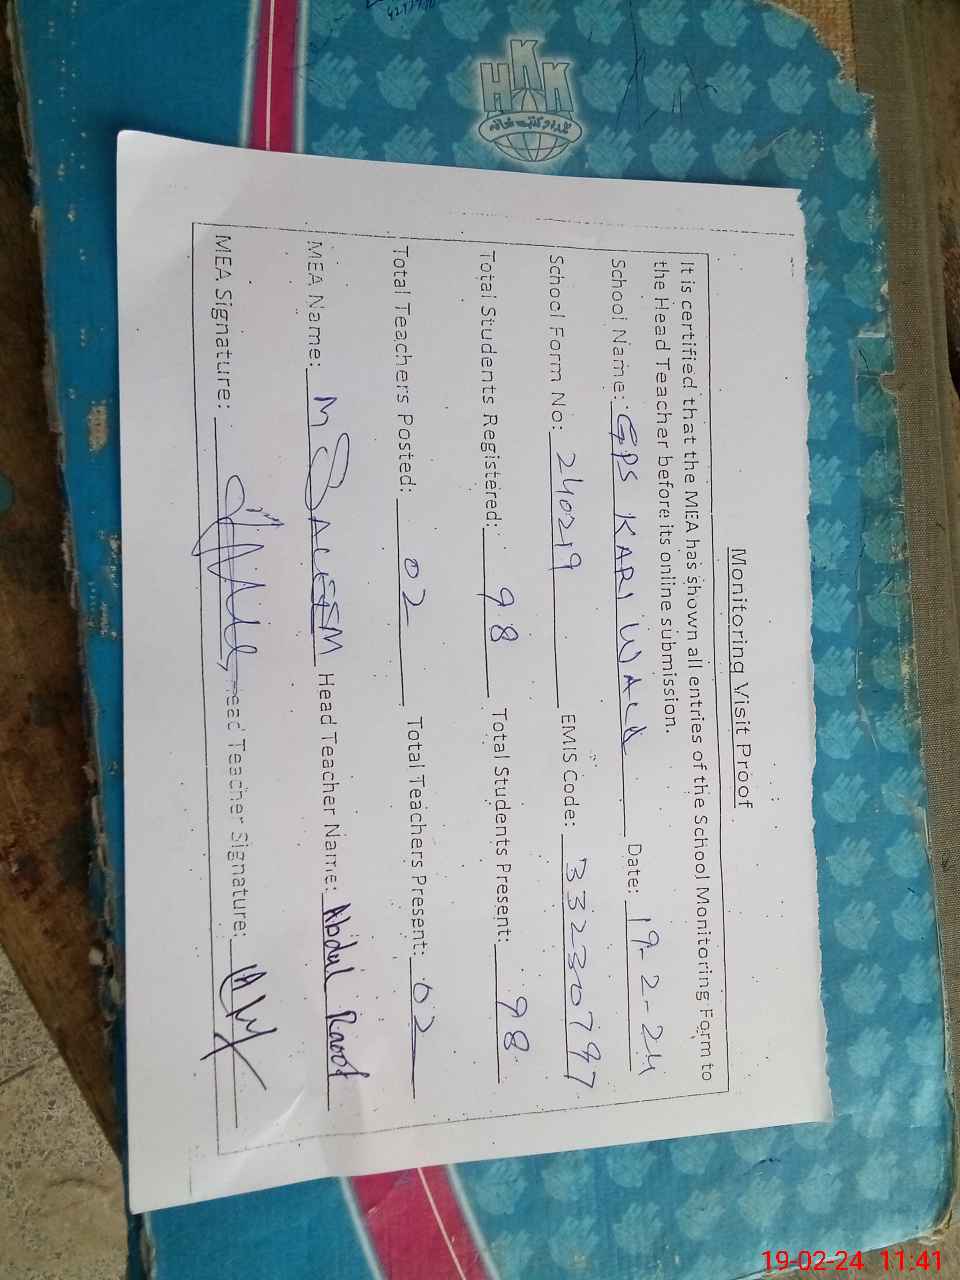 HKK
Monitoring Visit Proof
It is certified that the MEA has shown all entries of the School Monitoring Form to
the Head Teacher before its online submission.
School Name: GPS KARI WALA Date: 19-2-24
School Form No: 24029 EMIS Code: 33230797
Total Students Registered: 98 Total Students Present: 98
Total Teachers Posted: 02 Total Teachers Present: 02
MEA Name: M SALEEM Head Teacher Name: Abdul Raoof
MEA Signature: ead Teacher Signature:
19-02-24 11:41